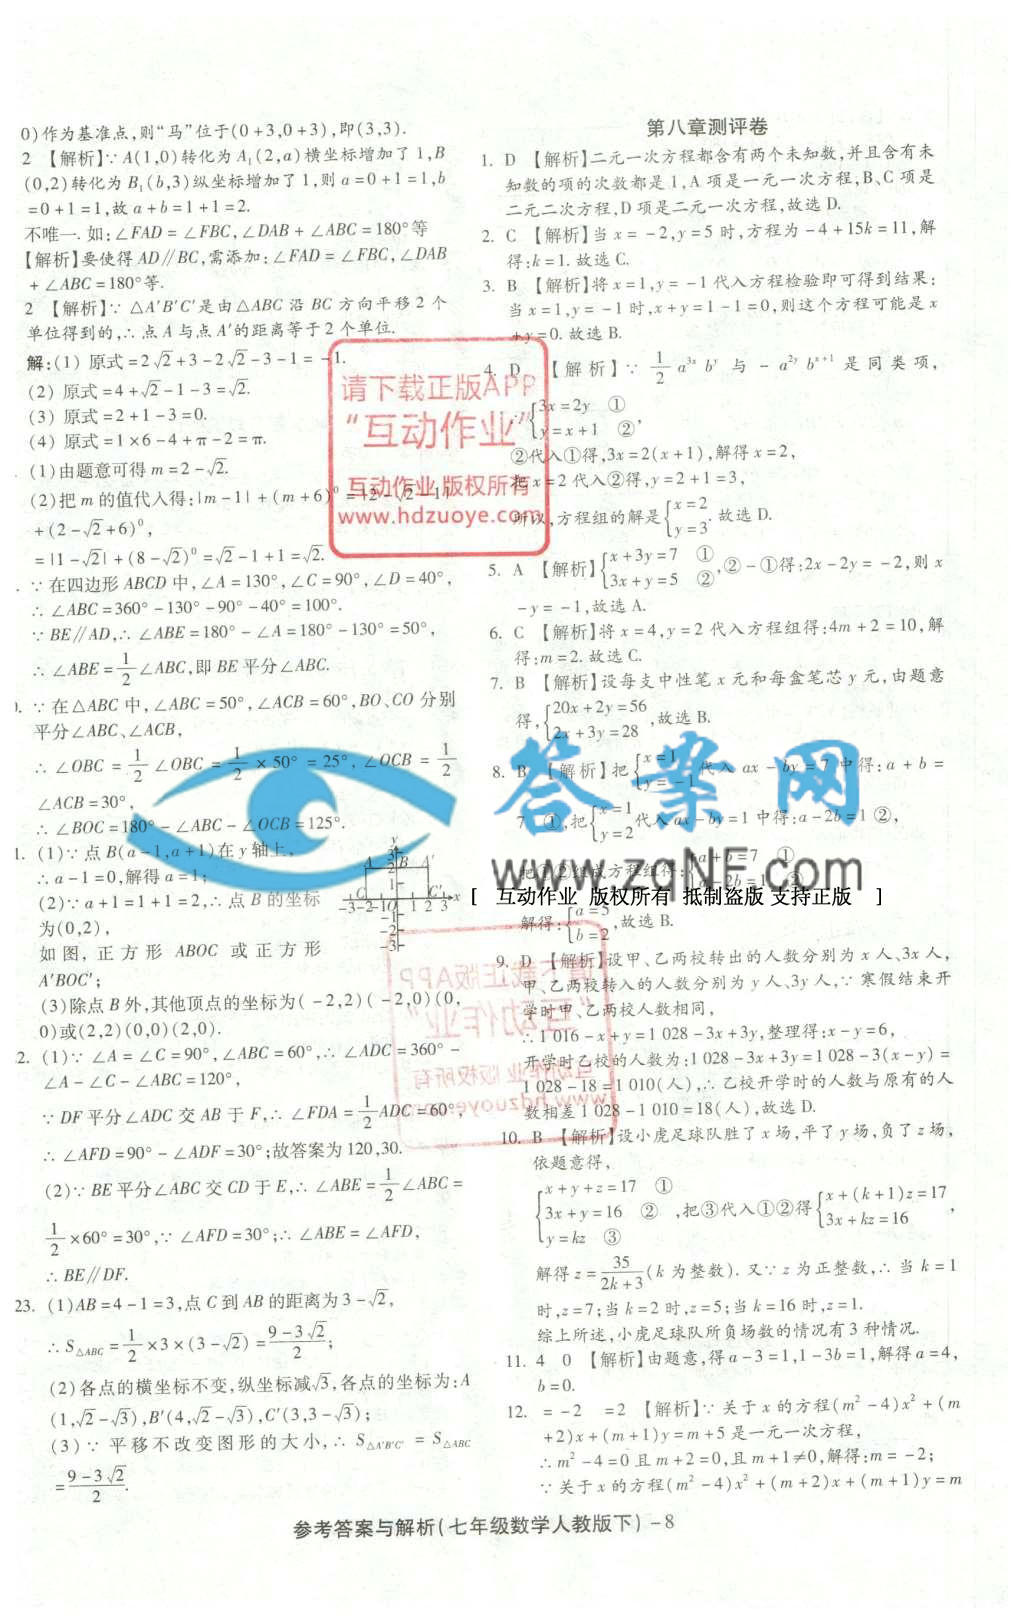 0)作为基准点,则“马”位于(0+3,0+3),即(3,3).
2 【解析】∵A(1,0)转化为A₁(2,a)横坐标增加了1,B
(0,2)转化为B₁(b,3)纵坐标增加了1,则a=0+1=1,b
=0+1=1,故a+b=1+1=2.
不唯一.如:∠FAD=∠FBC,∠DAB+∠ABC=180°等
【解析】要使得AD∥BC,需添加:∠FAD=∠FBC,∠DAB
+∠ABC=180°等.
2 【解析】∵△A′B′C′是由△ABC沿BC方向平移2个
单位得到的,∴点A与点A′的距离等于2个单位.
解:(1)原式=2√2+3-2√2-3-1=-1.
(2)原式=4+√2-1-3=√2.
(3)原式=2+1-3=0.
(4)原式=1×6-4+π-2=π.
(1)由题意可得m=2-√2.
(2)把m的值代入得:|m-1|+(m+6)⁰=|2-√2-1|
+(2-√2+6)⁰,
=|1-√2|+(8-√2)⁰=√2-1+1=√2.
∵在四边形ABCD中,∠A=130°,∠C=90°,∠D=40°,
∴∠ABC=360°-130°-90°-40°=100°.
∵BE∥AD,∴∠ABE=180°-∠A=180°-130°=50°,
∴∠ABE=1/2∠ABC,即BE平分∠ABC.
∵在△ABC中,∠ABC=50°,∠ACB=60°,BO、CO分别
平分∠ABC、∠ACB,
∴∠OBC=1/2∠OBC=1/2×50°=25°,∠OCB=1/2
∠ACB=30°,
∴∠BOC=180°-∠ABC-∠OCB=125°.
1. (1)∵点B(a-1,a+1)在y轴上,
∴a-1=0,解得a=1;
(2)∵a+1=1+1=2,∴点B的坐标
为(0,2),
如图,正方形ABOC或正方形
A′BOC′;
(3)除点B外,其他顶点的坐标为(-2,2)(-2,0)(0,
0)或(2,2)(0,0)(2,0).
2. (1)∵∠A=∠C=90°,∠ABC=60°,∴∠ADC=360°-
∠A-∠C-∠ABC=120°,
∵DF平分∠ADC交AB于F,∴∠FDA=1/2ADC=60°,
∴∠AFD=90°-∠ADF=30°;故答案为120,30.
(2)∵BE平分∠ABC交CD于E,∴∠ABE=1/2∠ABC=
1/2×60°=30°,∵∠AFD=30°;∴∠ABE=∠AFD,
∴BE∥DF.
23. (1)AB=4-1=3,点C到AB的距离为3-√2,
∴S△ABC=1/2×3×(3-√2)=(9-3√2)/2;
(2)各点的横坐标不变,纵坐标减√3,各点的坐标为:A
(1,√2-√3),B′(4,√2-√3),C′(3,3-√3);
(3)∵平移不改变图形的大小,∴S△A′B′C′=S△ABC
=(9-3√2)/2.
第八章测评卷
1. D 【解析】二元一次方程都含有两个未知数,并且含有未
知数的项的次数都是1,A项是一元一次方程,B、C项是
二元二次方程,D项是二元一次方程,故选D.
2. C 【解析】当x=-2,y=5时,方程为-4+15k=11,解
得:k=1.故选C.
3. B 【解析】将x=1,y=-1代入方程检验即可得到结果:
当x=1,y=-1时,x+y=1-1=0,则这个方程可能是x
+y=0.故选B.
4. D 【解析】∵1/2a³ˣbʸ与-a²ʸbˣ⁺¹是同类项,
∴{3x=2y ①
y=x+1 ②,
②代入①得,3x=2(x+1),解得x=2,
把x=2代入②得,y=2+1=3,
所以,方程组的解是{x=2
y=3.故选D.
5. A 【解析】{x+3y=7 ①
3x+y=5 ②,②-①得:2x-2y=-2,则x
-y=-1,故选A.
6. C 【解析】将x=4,y=2代入方程组得:4m+2=10,解
得:m=2.故选C.
7. B 【解析】设每支中性笔x元和每盒笔芯y元,由题意
得,{20x+2y=56
2x+3y=28,故选B.
8. B 【解析】把{x=1
y=-1代入ax-by=7中得:a+b=
7 ①,把{x=1
y=2代入ax-by=1中得:a-2b=1 ②,
把①②组成方程组得:{a+b=7 ①
a-2b=1 ②
解得:{a=5
b=2,故选B.
9. D 【解析】设甲、乙两校转出的人数分别为x人、3x人,
甲、乙两校转入的人数分别为y人、3y人,∵寒假结束开
学时甲、乙两校人数相同,
∴1 016-x+y=1 028-3x+3y,整理得:x-y=6,
开学时乙校的人数为:1 028-3x+3y=1 028-3(x-y)=
1 028-18=1 010(人),∴乙校开学时的人数与原有的人
数相差1 028-1 010=18(人),故选D.
10. B 【解析】设小虎足球队胜了x场,平了y场,负了z场,
依题意得,
{x+y+z=17 ①
3x+y=16 ②
y=kz ③,把③代入①②得{x+(k+1)z=17
3x+kz=16,
解得z=35/(2k+3)(k为整数).又∵z为正整数,∴当k=1
时,z=7;当k=2时,z=5;当k=16时,z=1.
综上所述,小虎足球队所负场数的情况有3种情况.
11. 4 0 【解析】由题意,得a-3=1,1-3b=1,解得a=4,
b=0.
12. =-2 =2 【解析】∵关于x的方程(m²-4)x²+(m
+2)x+(m+1)y=m+5是一元一次方程,
∴m²-4=0且m+2=0,且m+1≠0,解得:m=-2;
∵关于x的方程(m²-4)x²+(m+2)x+(m+1)y=m
参考答案与解析(七年级数学人教版下)-8
请下载正版APP
“互动作业”
互动作业 版权所有
www.hdzuoye.com
答案网
www.zqNF.com
[ 互动作业 版权所有 抵制盗版 支持正版 ]